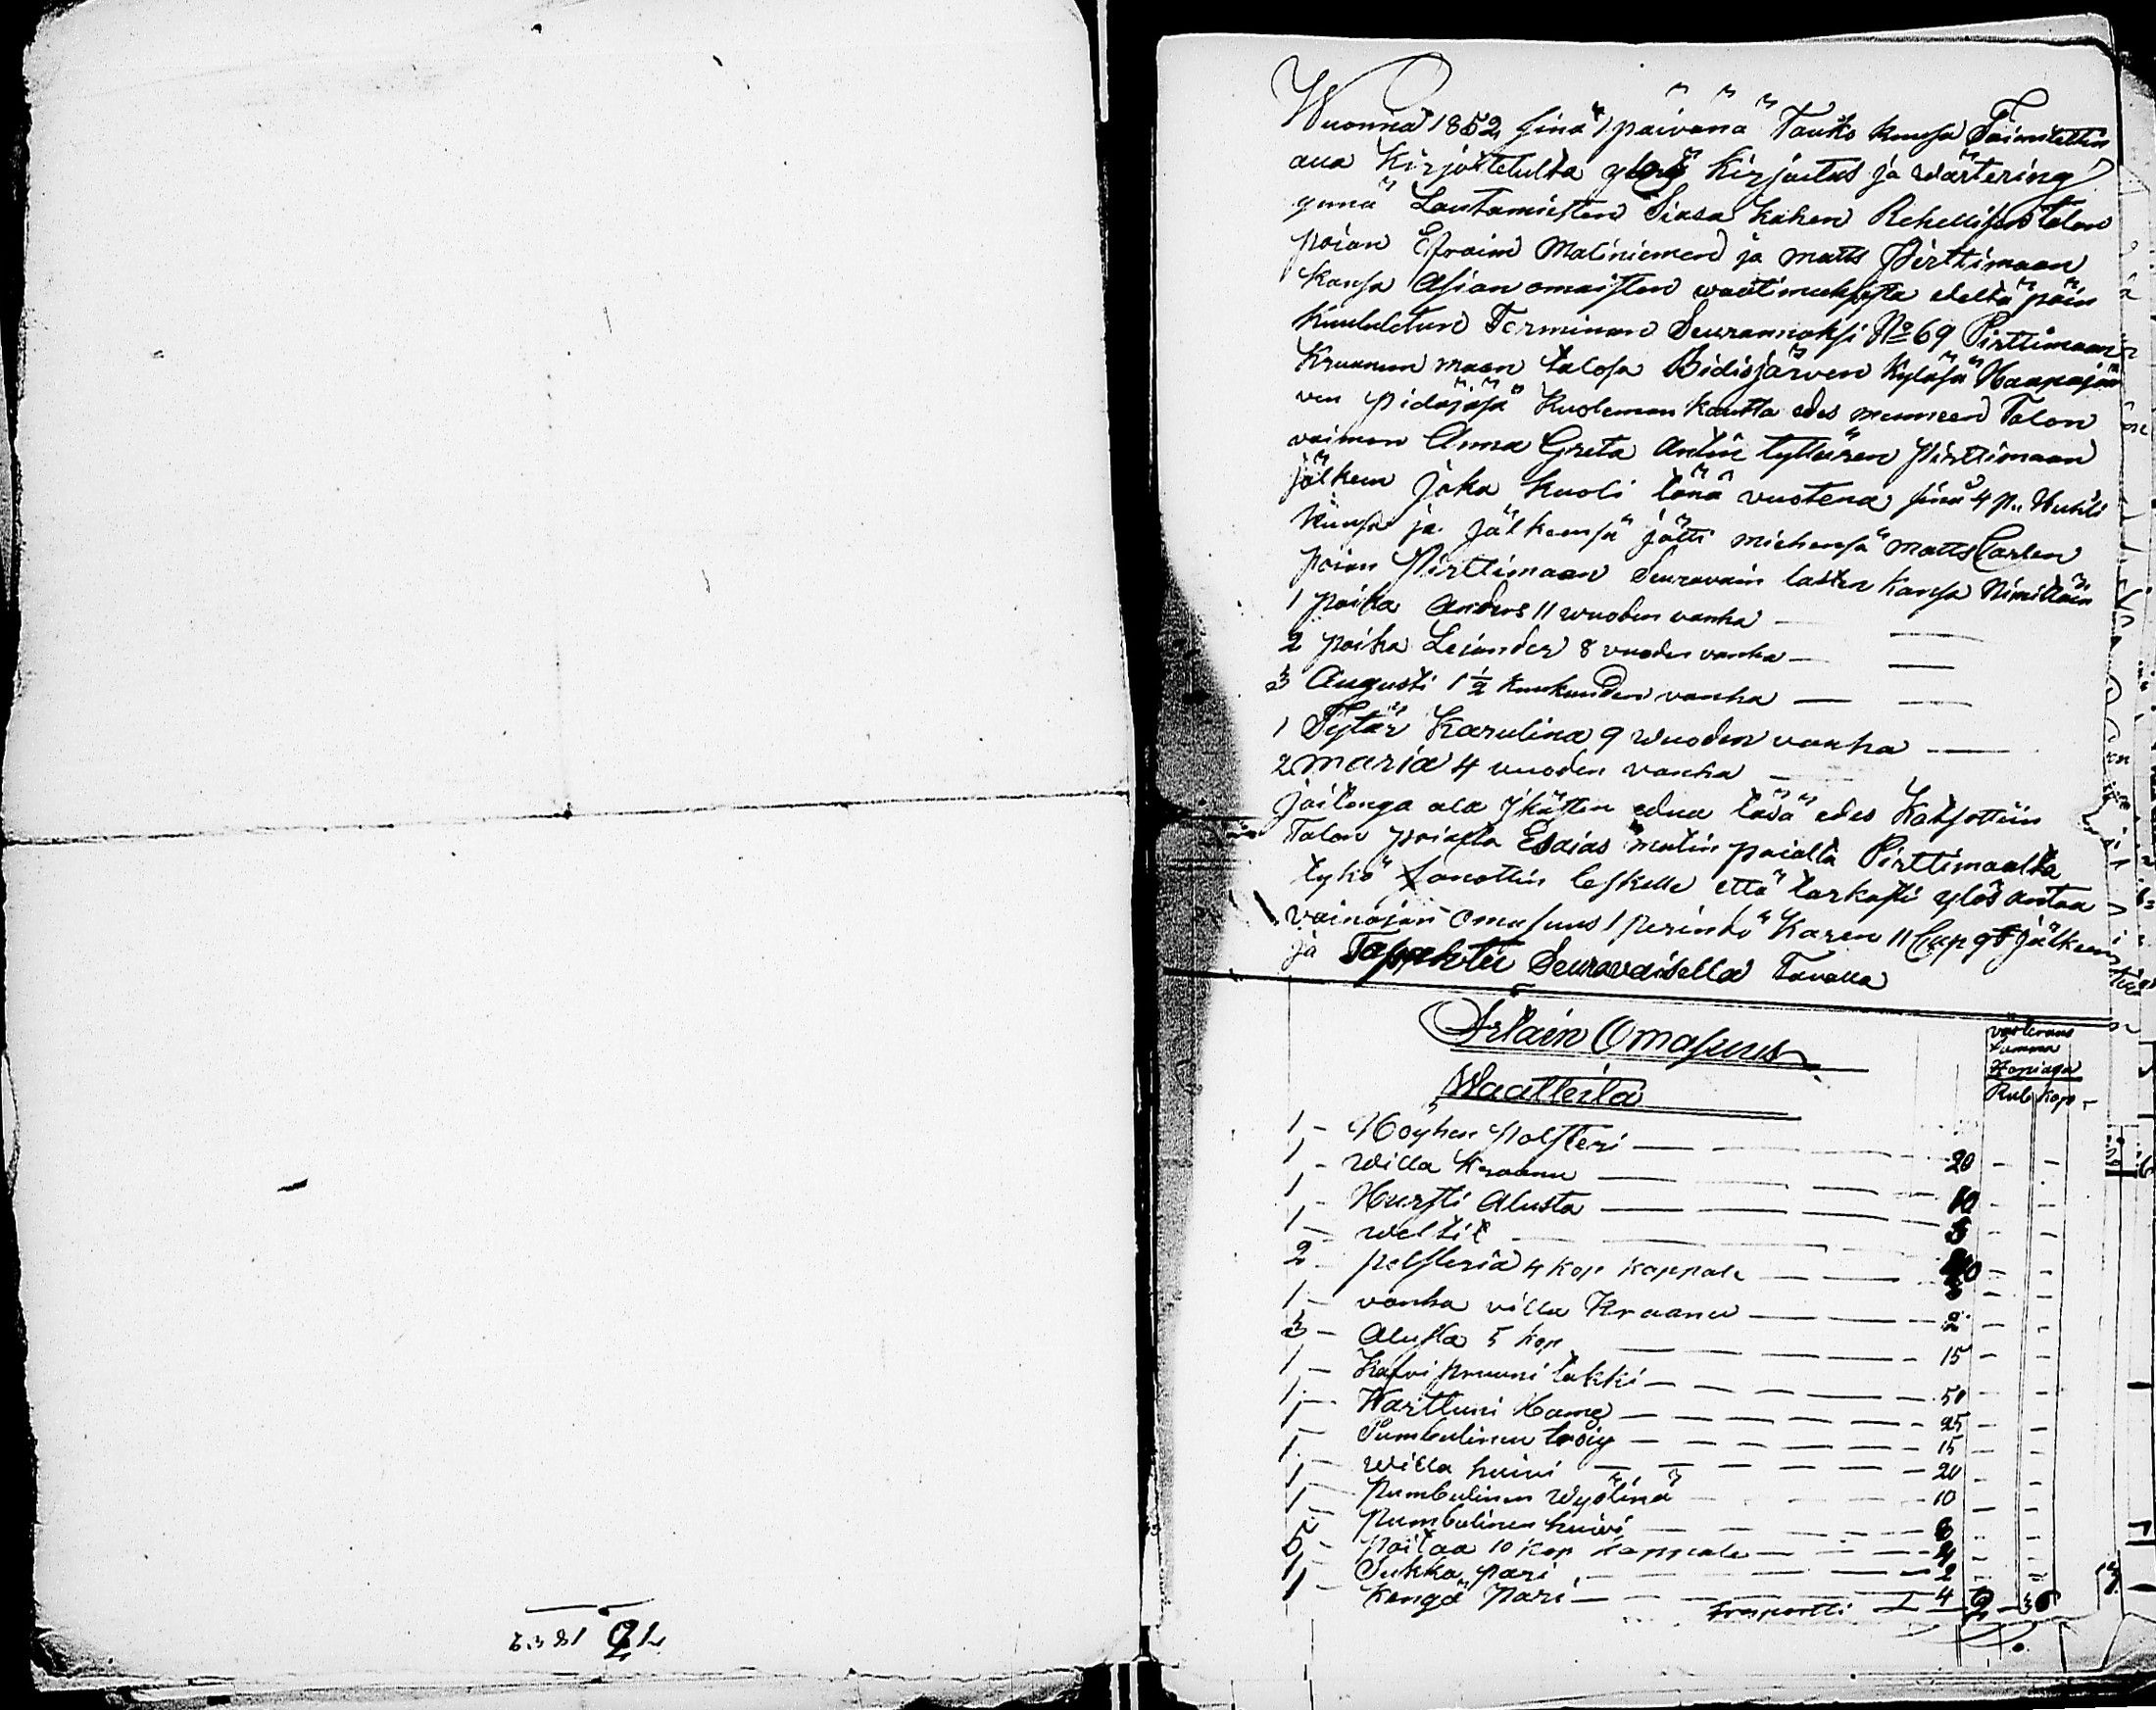 Wuonna 1852 sinä 1 päivänä Tauko kuusa Toimitettin
ala kirjoitetulta ylös kirjoitus ja wärtering
ynnä Lautamiesten Siasa kahen Rehellisen talon
poian Efraim Matiniemen ja Matts Pirttimaan
kansa Asian omaisten waatimuksesta edeltä päin
kuulutetun Terminan Seurannoksi No 69 Pirttimaan
Kruunun maan talosa Bidisjärven kyläsä Haapajär
ven pidäjäsä Kuoleman kautta edes menneen Talon
vaimon Anna Greta Antin tyttären Pirttimaan
jälkeen joka kuoli tänä vuotena sinä 4 p. Huhti
kuusa ja jälkeensä jätti miehensä Matts Carlen
poian Pirttimaan Seuravain lasten kansa Nimittäin
1 poika Anders 11 wuoden vanha
2 poika Leiander 8 vuoden vanha
3 Augusti 1 1/2 kuukauden vanha
1 Tytär Karulina 9 wuoden vanha
2 Maria 4 vuoden vanha
joitenga ala ikästen edua täsä edes Katsottiin
Talon poialta Esaias Matin poialta Pirttimaalta
tykö sanottin leskelle että tarkasti ylös antaa
vainajan omasuus perindö Karen 11 Cap § jälkeen
ja Tapahtu Seuravaisella Tavalla
Irtain Omasuus
wärteraus
summa
Hopiaga
Rub kop
Waatteita
1 - Höyhen Polsteri 20
1 - Willa kraanu 10
1 - Hursti Alusta
1 - weltit
2 - polsteria 4 kop kappale
1 - vanha villa Kraanu 2
3 - Alusta 5 kop 15
1 - Kasvi pruuni takki 50
1 - Karttuni Hame 25
1 - Pumbulinen tröiy 15
1 - willa huivi 20
1 - Pumbulinen wyölinä 10
1 - Pumbulinen huivi
5 - paitaa 10 kop kappale
1 - Sukka pari 2
1 - kengä pari 4
Trasportti 2 36
1852